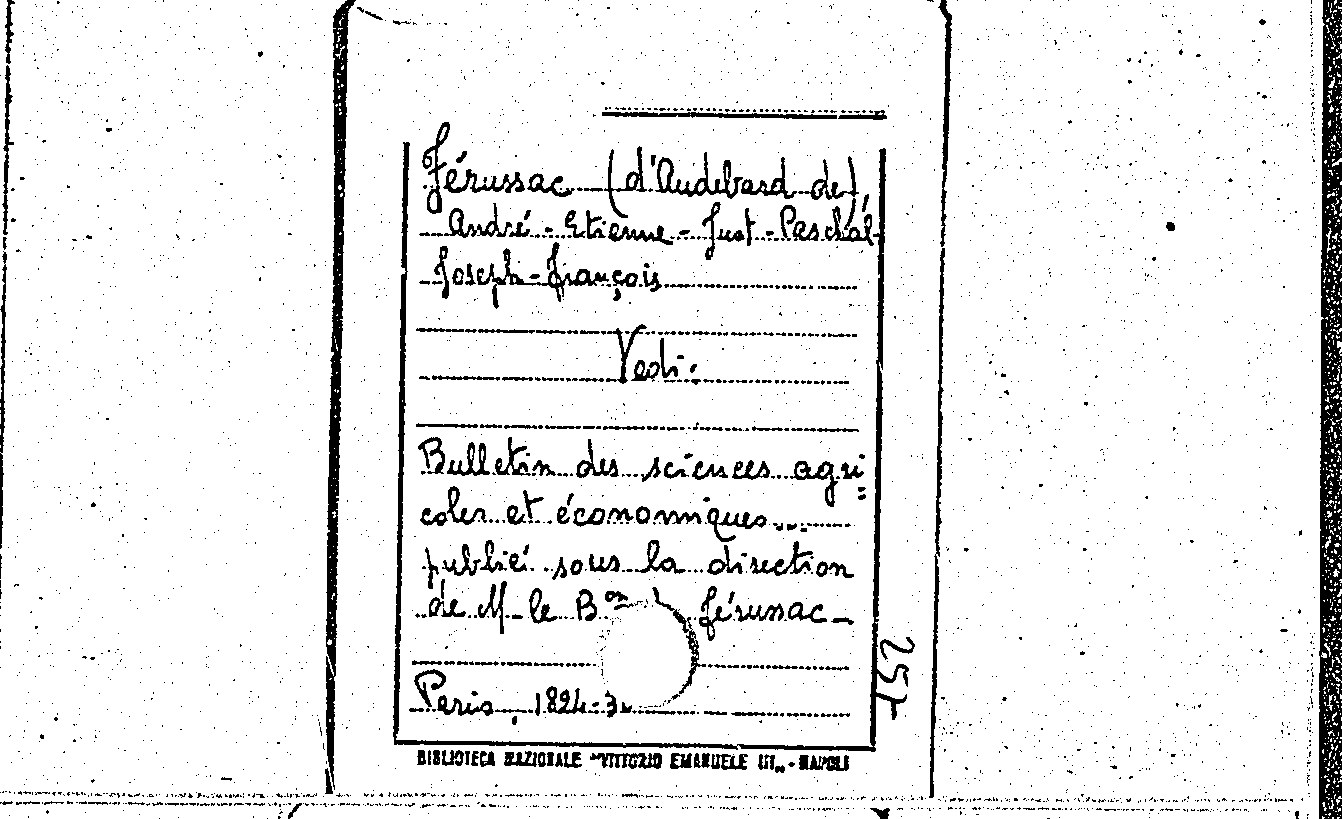 Férussac (d'Audebard de)
André-Etienne-Just-Paschal-
Joseph-François
Vedi:
Bulletin des sciences agri=
coles et économiques...
publié sous la direction
de M. le Bon Férussac-
Paris, 1824-3
254
BIBLIOTECA NAZIONALE "VITTORIO EMANUELE III„ - NAPOLI